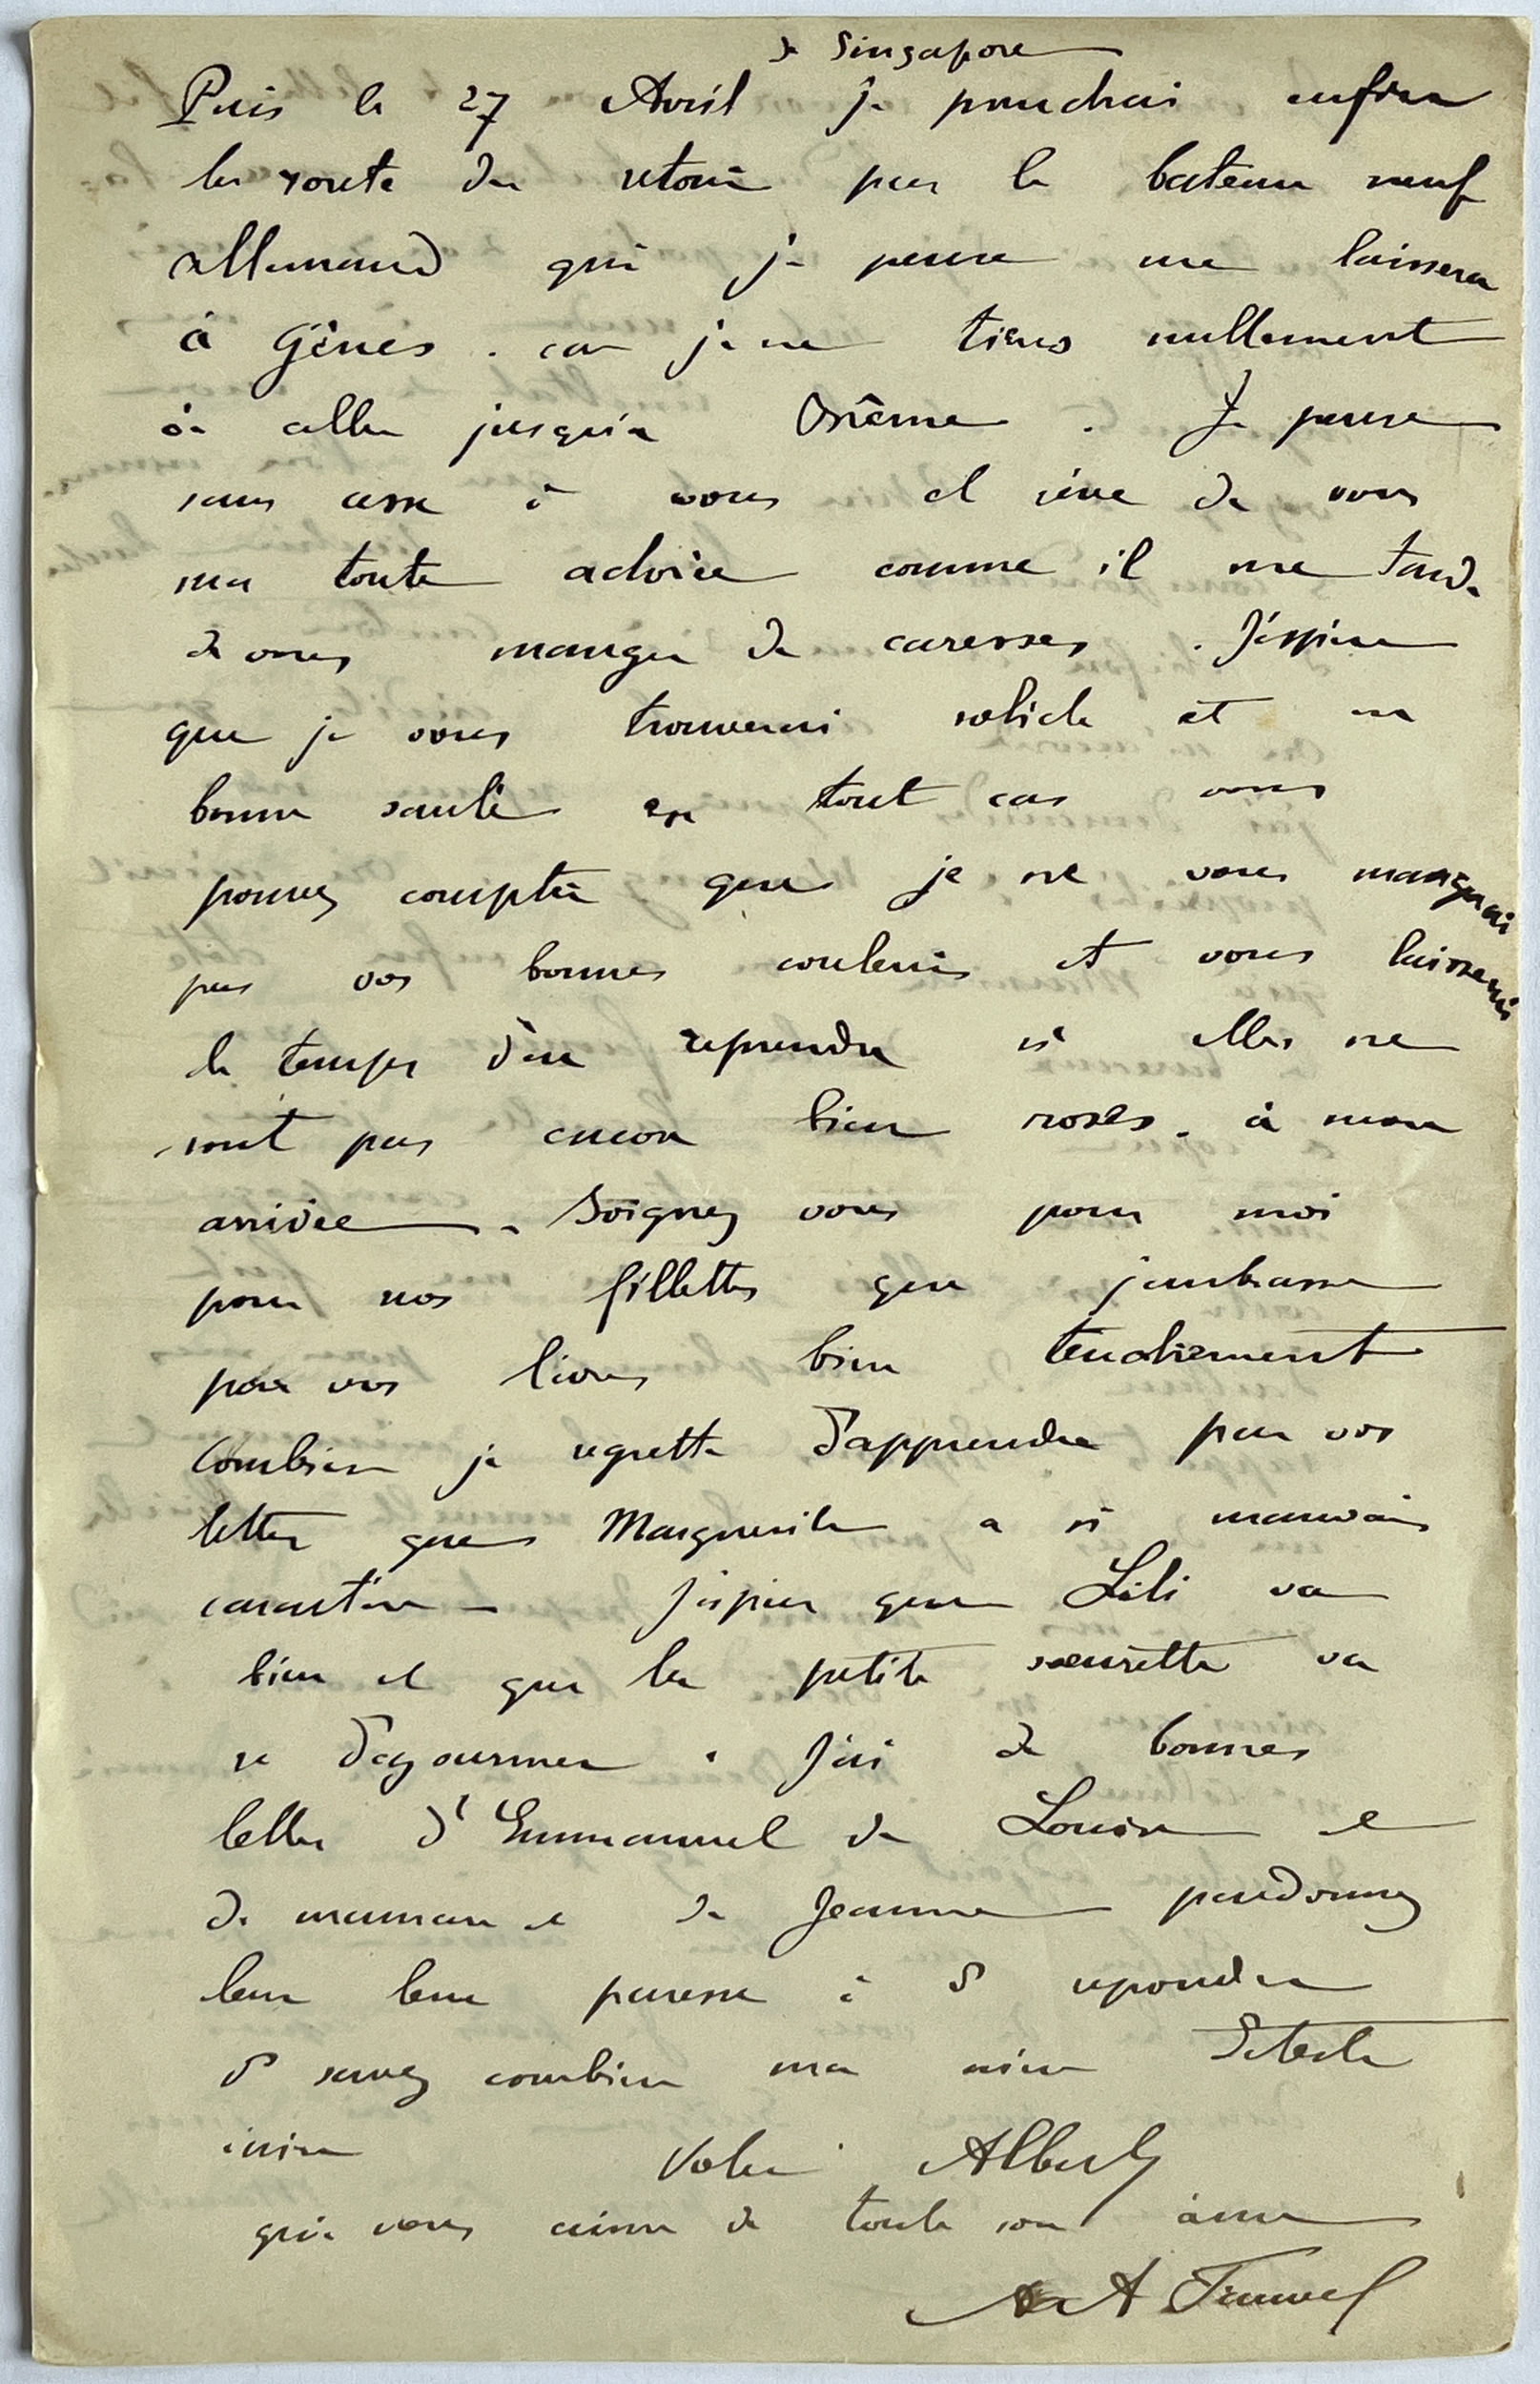 de Singapore
Puis le 27 Avril je prendrai enfin
la route du retour par le bateau neuf
allemand qui je pense me laissera
à Gênes. car je ne tiens nullement
à aller jusqu'à Brême. Je pense
sans cesse à vous et rêve de vous
ma toute adorée comme il me tarde
de vous manger de caresses. J'espère
que je vous trouverai solide et en
bonne santé en tout cas vous
pouvez compter que je ne vous mangerai
pas vos bonnes couleurs et vous laisserai
le temps d'en reprendre si elles ne
sont pas encore bien roses. à mon
arrivée. Soignez vous pour moi
pour nos fillettes que j'embrasse
par vos lèvres bien tendrement
Combien je regrette d'apprendre par vos
lettres que Marguerite a si mauvais
caractère - J'espère que Lili va
bien et que la petite sœurette va
se dégourmer. J'ai de bonnes
lettres d'Emmanuel de Louise et
de maman et de Jeanne pardonnez
leur leur paresse à v repondre
v savez combien ma mère déteste
écrire Votre Albert
qui vous aime de toute son âme
A